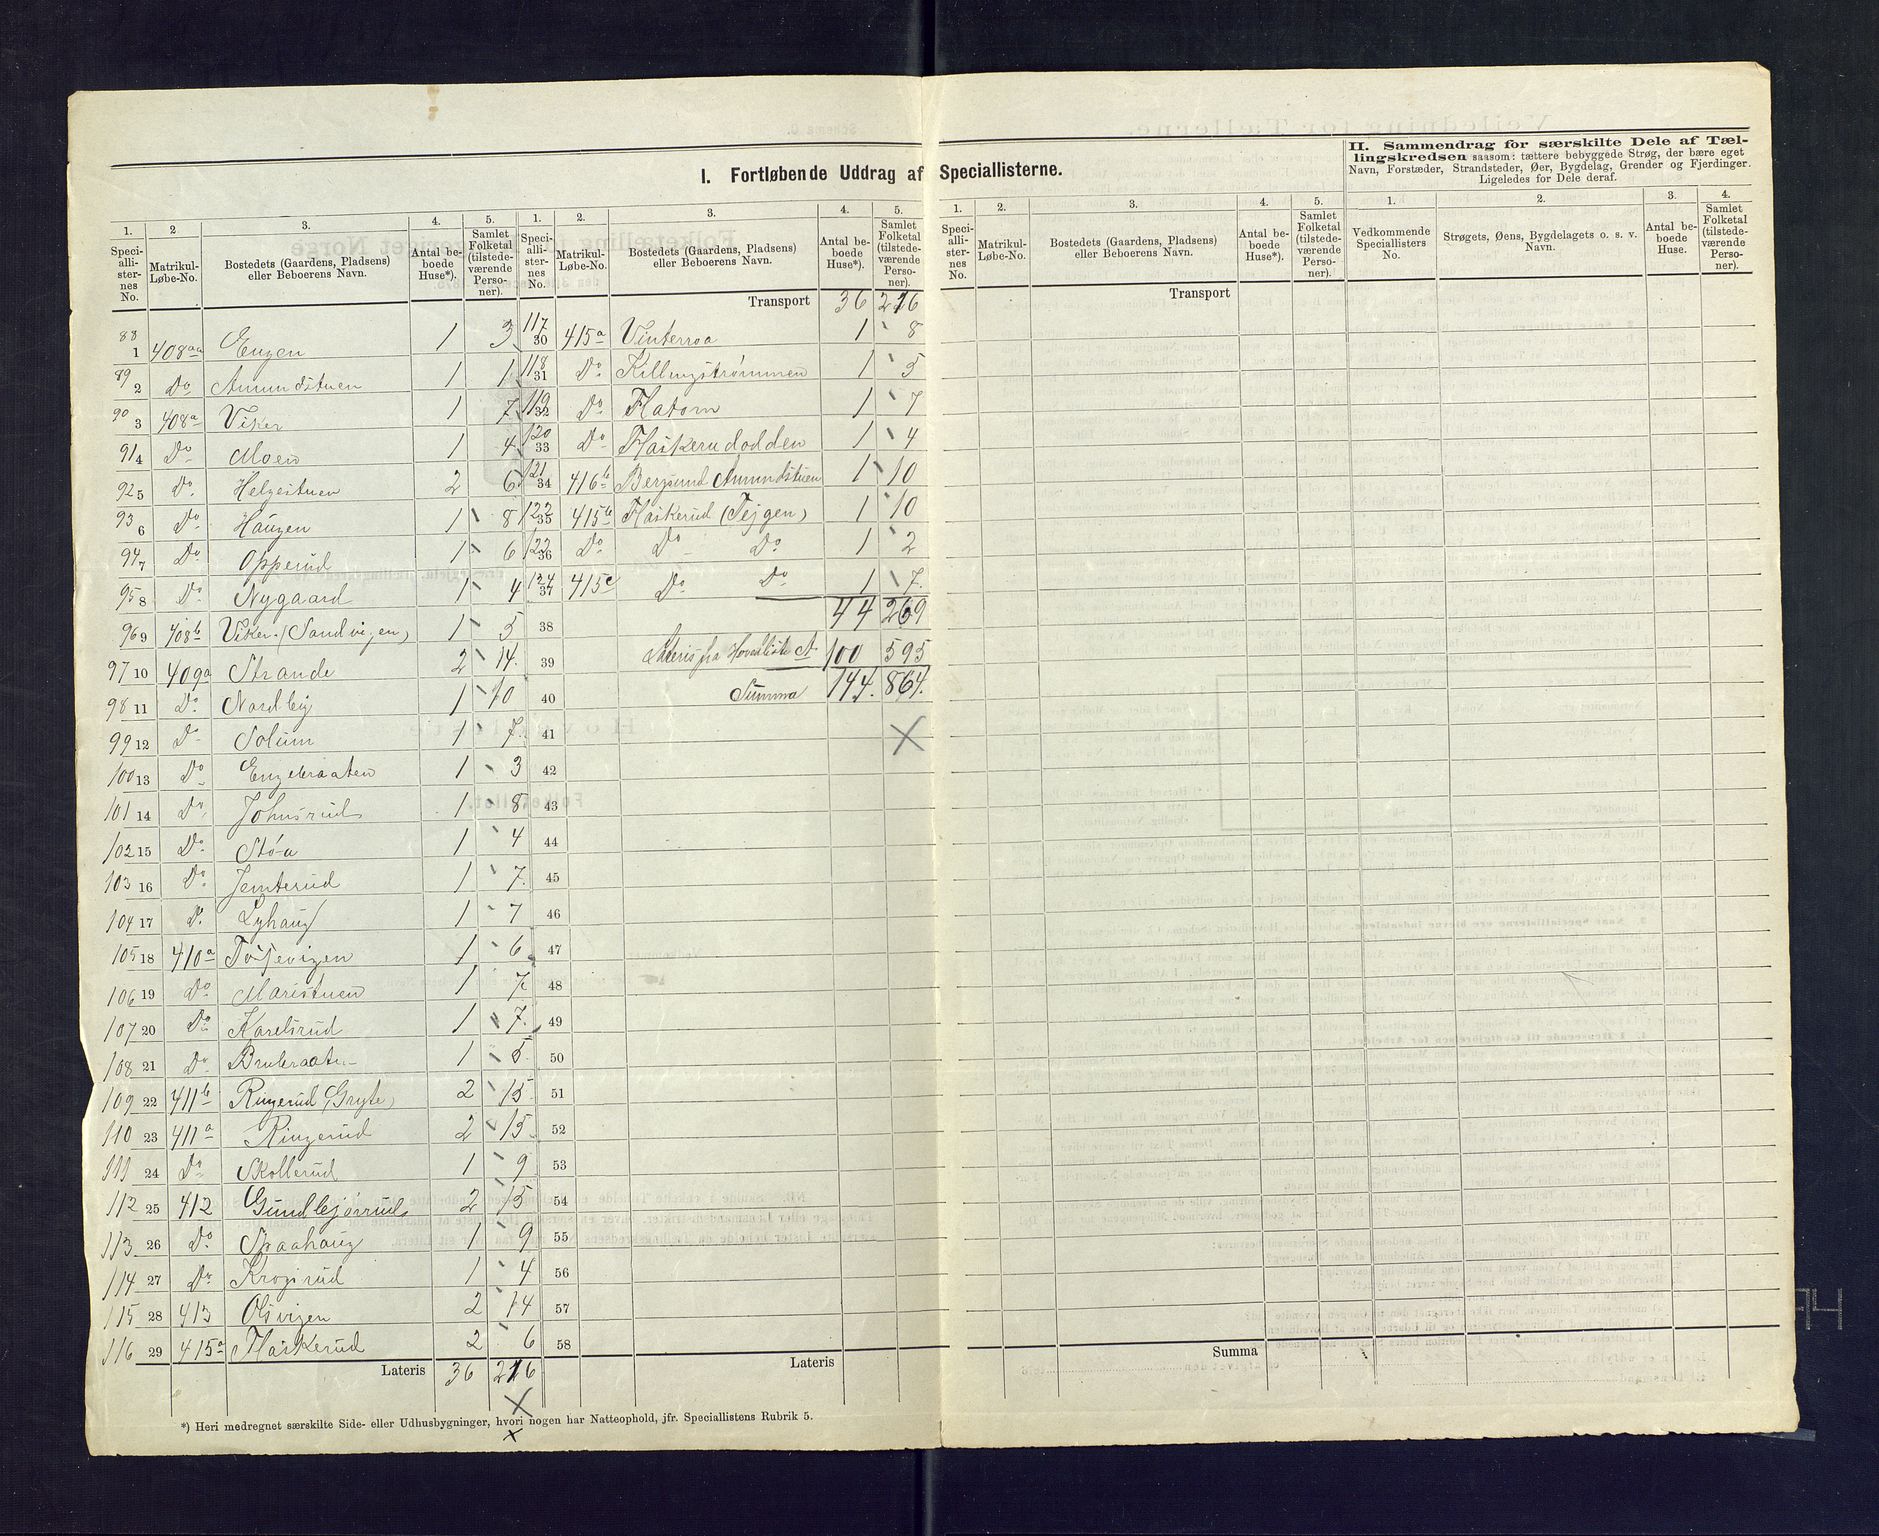 I. Fortløbende Uddrag af Speciallisterne.
II. Sammendrag for særskilte Dele af Tæl-
lingskredsen saasom: tættere bebyggede Strøg, der bære eget
Navn, Forstæder, Strandsteder, Øer, Bygdelag, Grender og Fjerdinger.
Ligeledes for Dele deraf.
1. 2 3. 4. 5. 1. 2. 3. 4. 5. 1. 2. 3. 4. 5. 1. 2. 3. 4.
Speciallisternes No. Matrikul-Løbe-No. Bostedets (Gaardens, Pladsens) eller Beboerens Navn. Antal beboede Huse*). Samlet Folketal (tilstedeværende Personer).
Speciallisternes No. Matrikul-Løbe-No. Bostedets (Gaardens, Pladsens) eller Beboerens Navn. Antal beboede Huse*). Samlet Folketal (tilstedeværende Personer).
Speciallisternes No. Matrikul-Løbe-No. Bostedets (Gaardens, Pladsens) eller Beboerens Navn. Antal beboede Huse*). Samlet Folketal (tilstedeværende Personer).
Vedkommende Speciallisters No. Strøgets, Øens, Bygdelagets o. s. v. Navn. Antal beboede Huse. Samlet Folketal (tilstedeværende Personer).
88 1 408aa Engen 1 3
89 2 Do Amundstuen 1 1
90 3 408a Viker 1 7
91 4 Do Moen 1 4
92 5 Do Helgestuen 2 6
93 6 Do Haugen 1 8
94 7 Do Opperud 1 6
95 8 Do Nygaard 1 4
96 9 408b Viker (Sandvigen) 1 5
97 10 409a Strande 2 14
98 11 Do Nordby 1 10
99 12 Do Solum 1 7
100 13 Do Engebraaten 1 3
101 14 Do Johnsrud 1 8
102 15 Do Støa 1 4
103 16 Do Jemterud 1 7
104 17 Do Lyhaug 1 7
105 18 410a Tosevigen 1 6
106 19 Do Maristuen 1 7
107 20 Do Karelsrud 1 7
108 21 Do Brubraaten 1 5
109 22 411b Ringerud (Gryte) 2 15
110 23 411a Ringerud 2 15
111 24 Do Skollerud 1 9
112 25 412 Gundbjørrud 2 15
113 26 Do Spaahaug 1 9
114 27 Do Krogsrud 1 4
115 28 413 Olsvigen 2 14
116 29 415a Haskerud 2 6
Lateris 36 216
Transport 36 216
117 30 415a Vinterroa 1 8
118 31 Do Killingstrømmen 1 5
119 32 Do Flatom 1 7
120 33 Do Haskerudodden 1 4
121 34 416b Bergsund Amundstuen 1 10
122 35 415b Haskerud (Teigen) 1 10
122 36 Do Do Do 1 2
124 37 415c Do Do 1 7
38 44 269
39 Lateris fra Hovedliste A 100 595
40 Summa 144. 864.
41
42
43
44
45
46
47
48
49
50
51
52
53
54
55
56
57
58
Lateris
Transport
Summa
*) Heri medregnet særskilte Side- eller Udhusbygninger, hvori nogen har Natteophold, jfr. Speciallistens Rubrik 5.